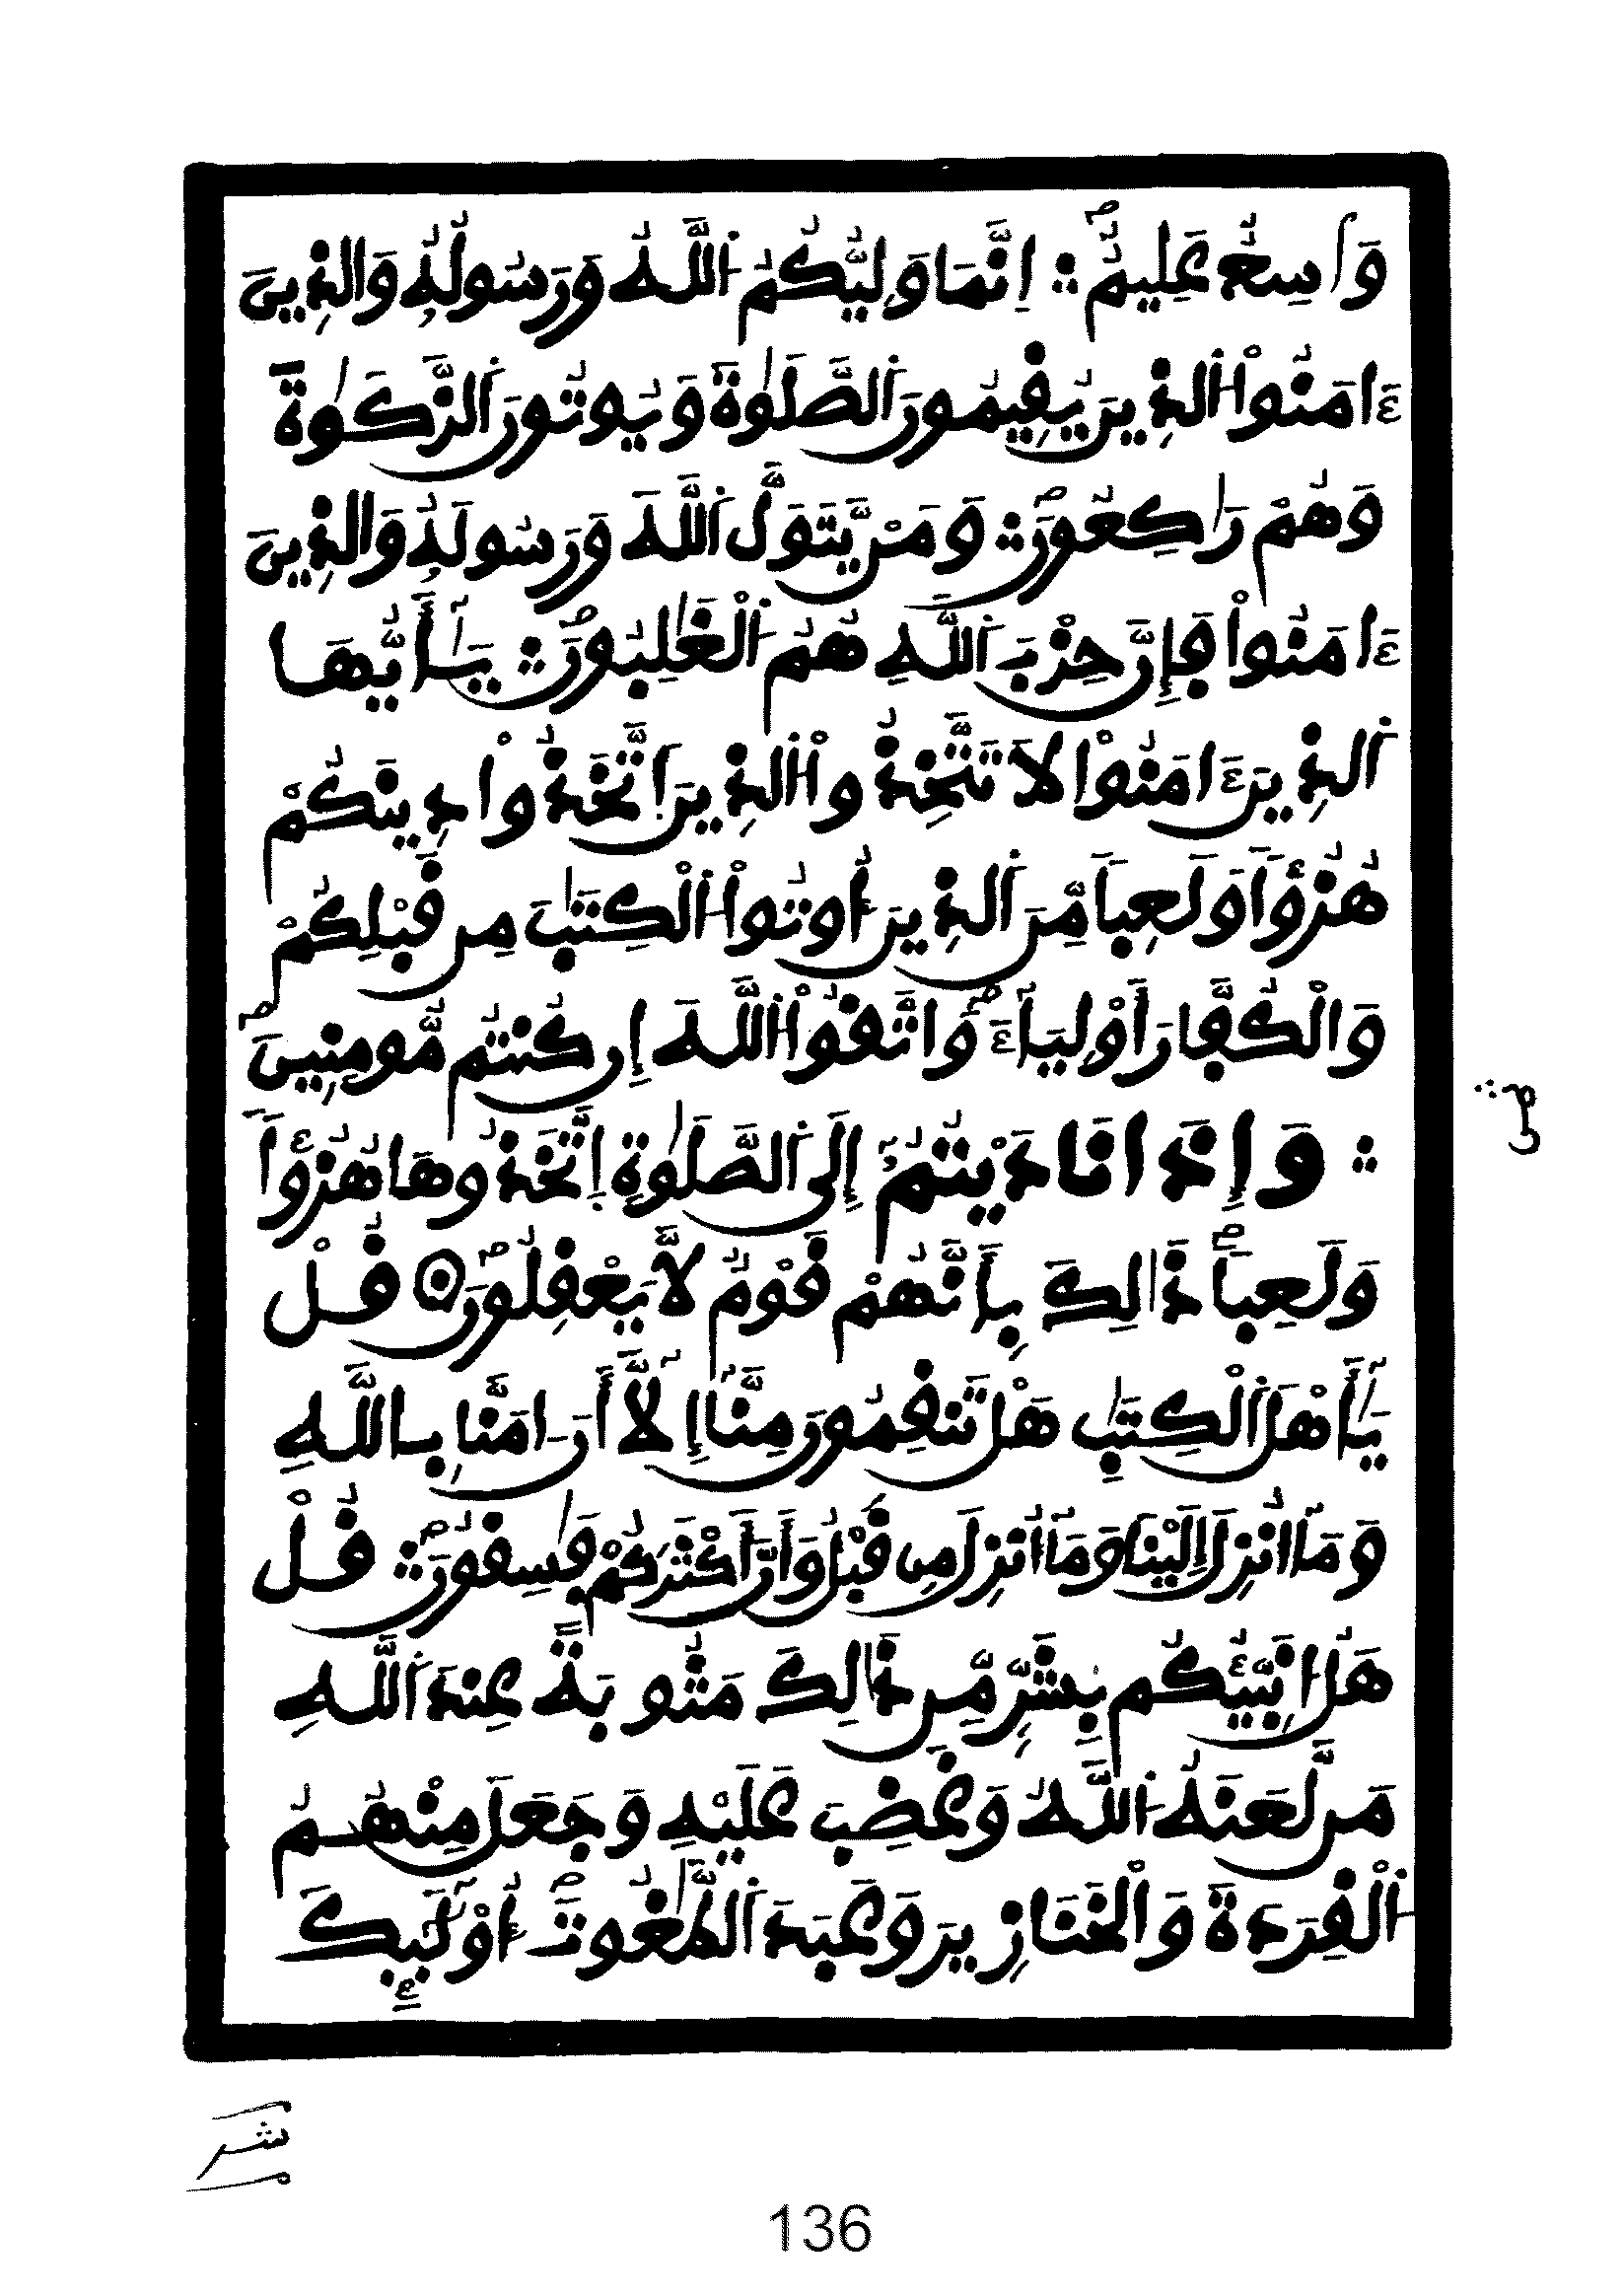 وَٰسِعٌ عَلِيمٌ ؞ اِنَّمَا وَلِيُّكُمُ اُ۬للَّهُ وَرَسُولُهُۥ وَالذِينَ
ءَامَنُواْ اُ۬لذِينَ يُقِيمُونَ اَ۬لصَّلَوٰةَ وَيُوتُونَ اَ۬لزَّكَوٰةَ
وَهُمْ رَٰكِعُونَ ؞ وَمَنْ يَّتَوَلَّ اَ۬للَّهَ وَرَسُولَهُۥ وَالذِينَ
ءَامَنُواْ فَإِنَّ حِزْبَ اَ۬للَّهِ هُمُ اُ۬لْغَٰلِبُونَ ؞ يَٰٓأَيُّهَا
اَ۬لذِينَ ءَامَنُواْ لَا تَتَّخِذُواْ اُ۬لذِينَ اَ۪تَّخَذُواْ دِينَكُمْ
هُزُؤاٗ وَلَعِباٗ مِّنَ اَ۬لذِينَ أُوتُواْ اُ۬لْكِتَٰبَ مِن قَبْلِكُمْ
وَالْكُفَّارَ أَوْلِيَآءَ وَاتَّقُواْ اُ۬للَّهَ إِن كُنتُم مُّومِنِينَ
؞ وَإِذَا نَادَيْتُمُۥٓ إِلَى اَ۬لصَّلَوٰةِ اِ۪تَّخَذُوهَا هُزُؤاٗ
وَلَعِباٗ ذَٰلِكَ بِأَنَّهُمْ قَوْمٌ لَّا يَعْقِلُونَ ۝ قُلْ
يَٰٓأَهْلَ اَ۬لْكِتَٰبِ هَلْ تَنقِمُونَ مِنَّآ إِلَّآ أَنَ اٰمَنَّا بِاللَّهِ
وَمَآ أُنزِلَ إِلَيْنَا وَمَآ أُنزِلَ مِن قَبْلُ وَأَنَّ أَكْثَرَكُمْ فَٰسِقُونَ ؞ قُلْ
هَلُ ا۟نَبِّيُكُم بِشَرٍّ مِّن ذَٰلِكَ مَثُوبَةً عِندَ اَ۬للَّهِ
مَن لَّعَنَهُ اُ۬للَّهُ وَغَضِبَ عَلَيْهِ وَجَعَلَ مِنْهُمُ
اُ۬لْقِرَدَةَ وَالْخَنَازِيرَ وَعَبَدَ اَ۬لطَّٰغُوتَ أُوْلَٰٓئِكَ
شر
136